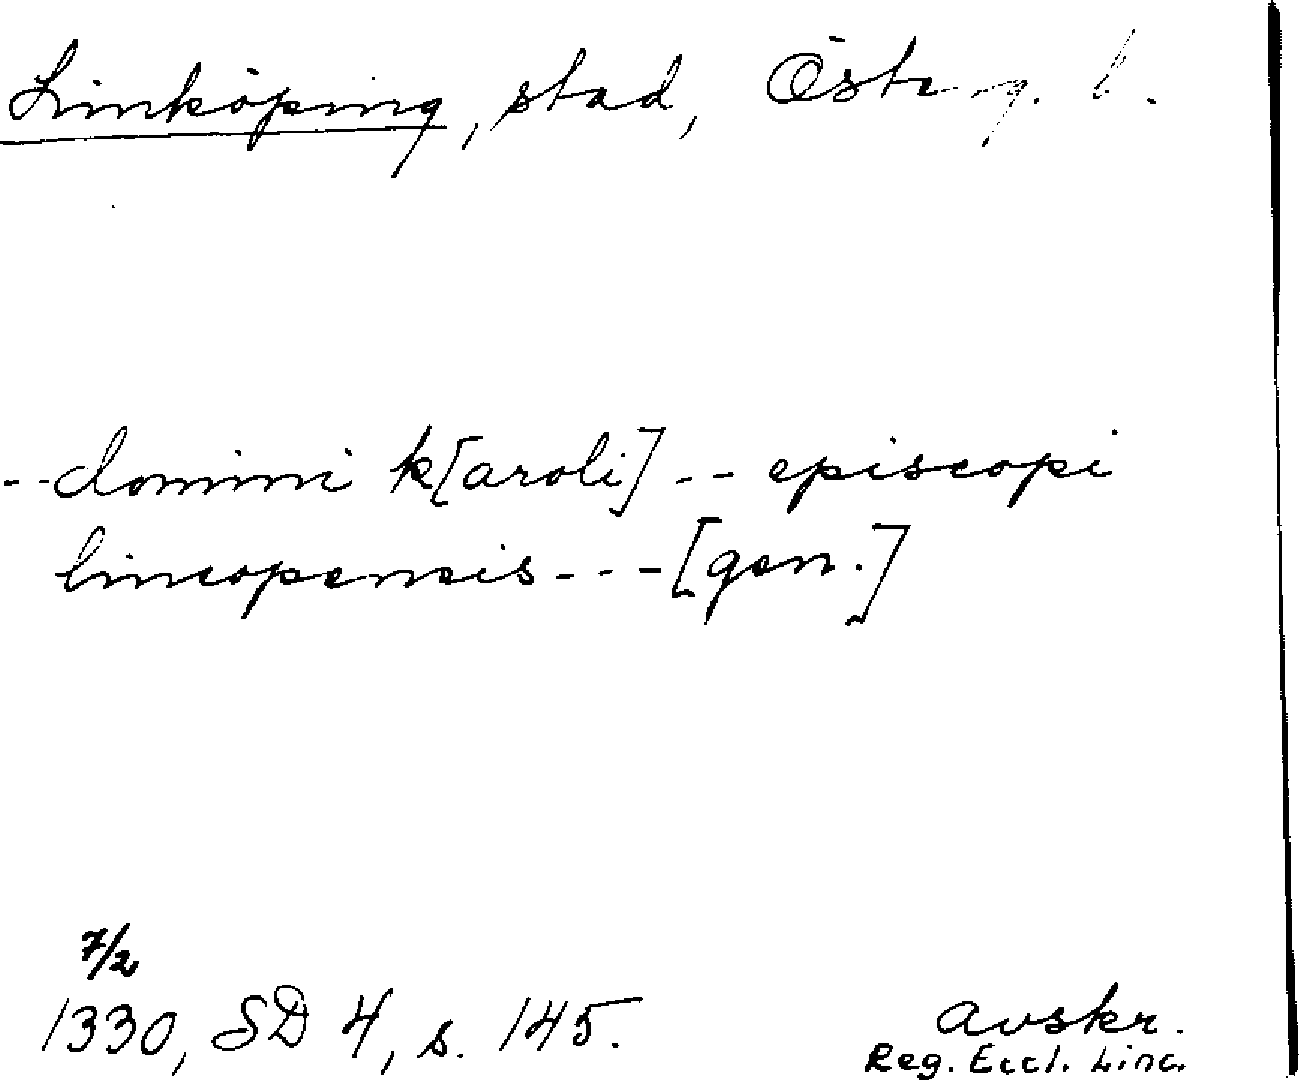 Linköping, stad, Österg. l.
--domini k[aroli] -- episcopi
lincopensis --- [gen.]
7/2
1330, SD 4, s. 145.
avskr.
Reg. Eccl. Linc.